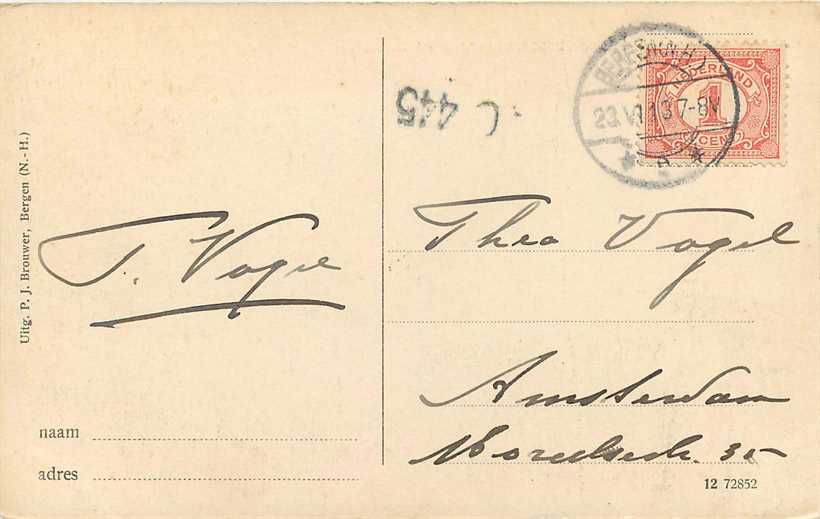 Uitg. P. J. Brouwer, Bergen (N.-H.)
T. Vogel
naam
adres
C 445
BERGEN (N.H.)
23.VI.13 7-8V
NEDERLAND
1
CENT
Theo Vogel
Amsterdam
35
12 72852